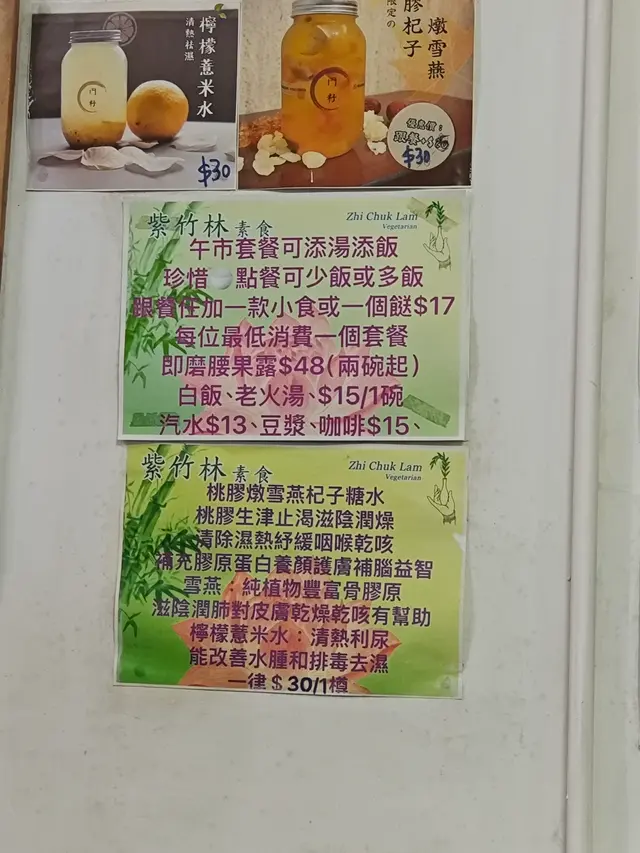 檸檬薏米水
清熱祛濕
門籽
$30
燉雪燕
膠杞子
限定の
門籽
優惠價:
跟餐+$
$30
紫竹林素食
Zhi Chuk Lam
Vegetarian
午市套餐可添湯添飯
珍惜 點餐可少飯或多飯
跟餐任加一款小食或一個餸$17
每位最低消費一個套餐
即磨腰果露$48(兩碗起)
白飯、老火湯、$15/1碗
汽水$13、豆漿、咖啡$15、
紫竹林素食
Zhi Chuk Lam
Vegetarian
桃膠燉雪燕杞子糖水
桃膠生津止渴滋陰潤燥
清除濕熱紓緩咽喉乾咳
補充膠原蛋白養顏護膚補腦益智
雪燕:純植物豐富骨膠原
滋陰潤肺對皮膚乾燥乾咳有幫助
檸檬薏米水:清熱利尿
能改善水腫和排毒去濕
一律$30/1樽